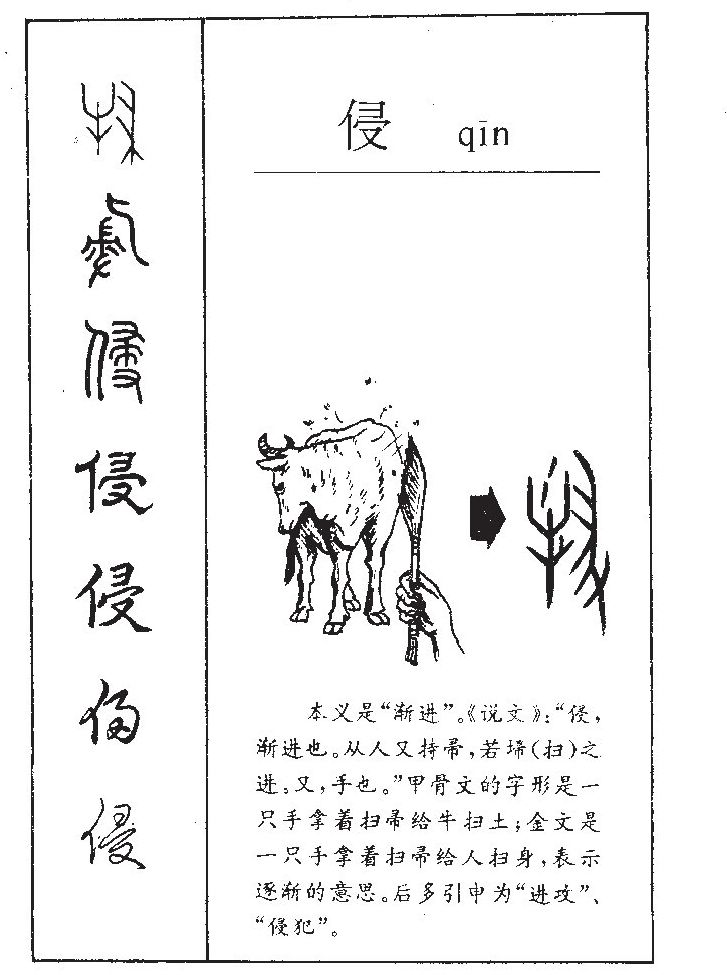 侵 qīn
本义是“渐进”。《说文》:“侵,
渐进也。从人又持帚,若埽(扫)之
进。又,手也。”甲骨文的字形是一
只手拿着扫帚给牛扫土;金文是
一只手拿着扫帚给人扫身,表示
逐渐的意思。后多引申为“进攻”、
“侵犯”。
侵
侵
侵
侵
侵
侵
侵